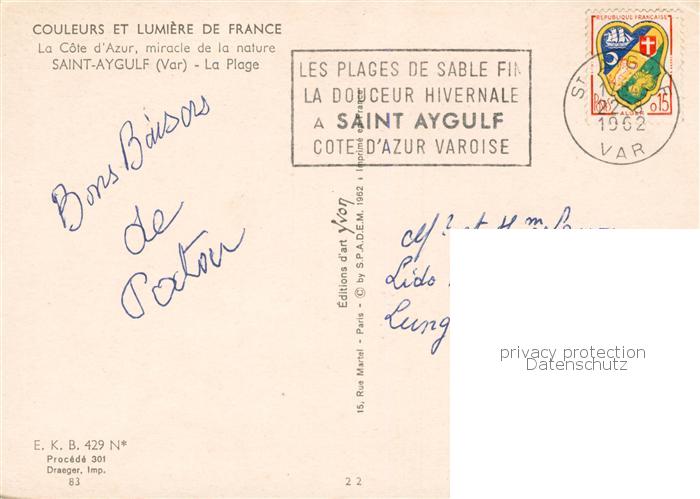 COULEURS ET LUMIÈRE DE FRANCE
La Côte d'Azur, miracle de la nature
SAINT-AYGULF (Var) - La Plage
LES PLAGES DE SABLE FIN
LA DOUCEUR HIVERNALE
A SAINT AYGULF
COTE D'AZUR VAROISE
REPUBLIQUE FRANÇAISE
0,15
ALGER
1962
VAR
Bons Baisers
de
Éditions d'art Yvon
15, Rue Martel - Paris - © by S.P.A.D.E.M. 1962 - Imprimé en France
Lido
privacy protection
Datenschutz
E. K. B. 429 N*
Procédé 301
Draeger, Imp.
83
22